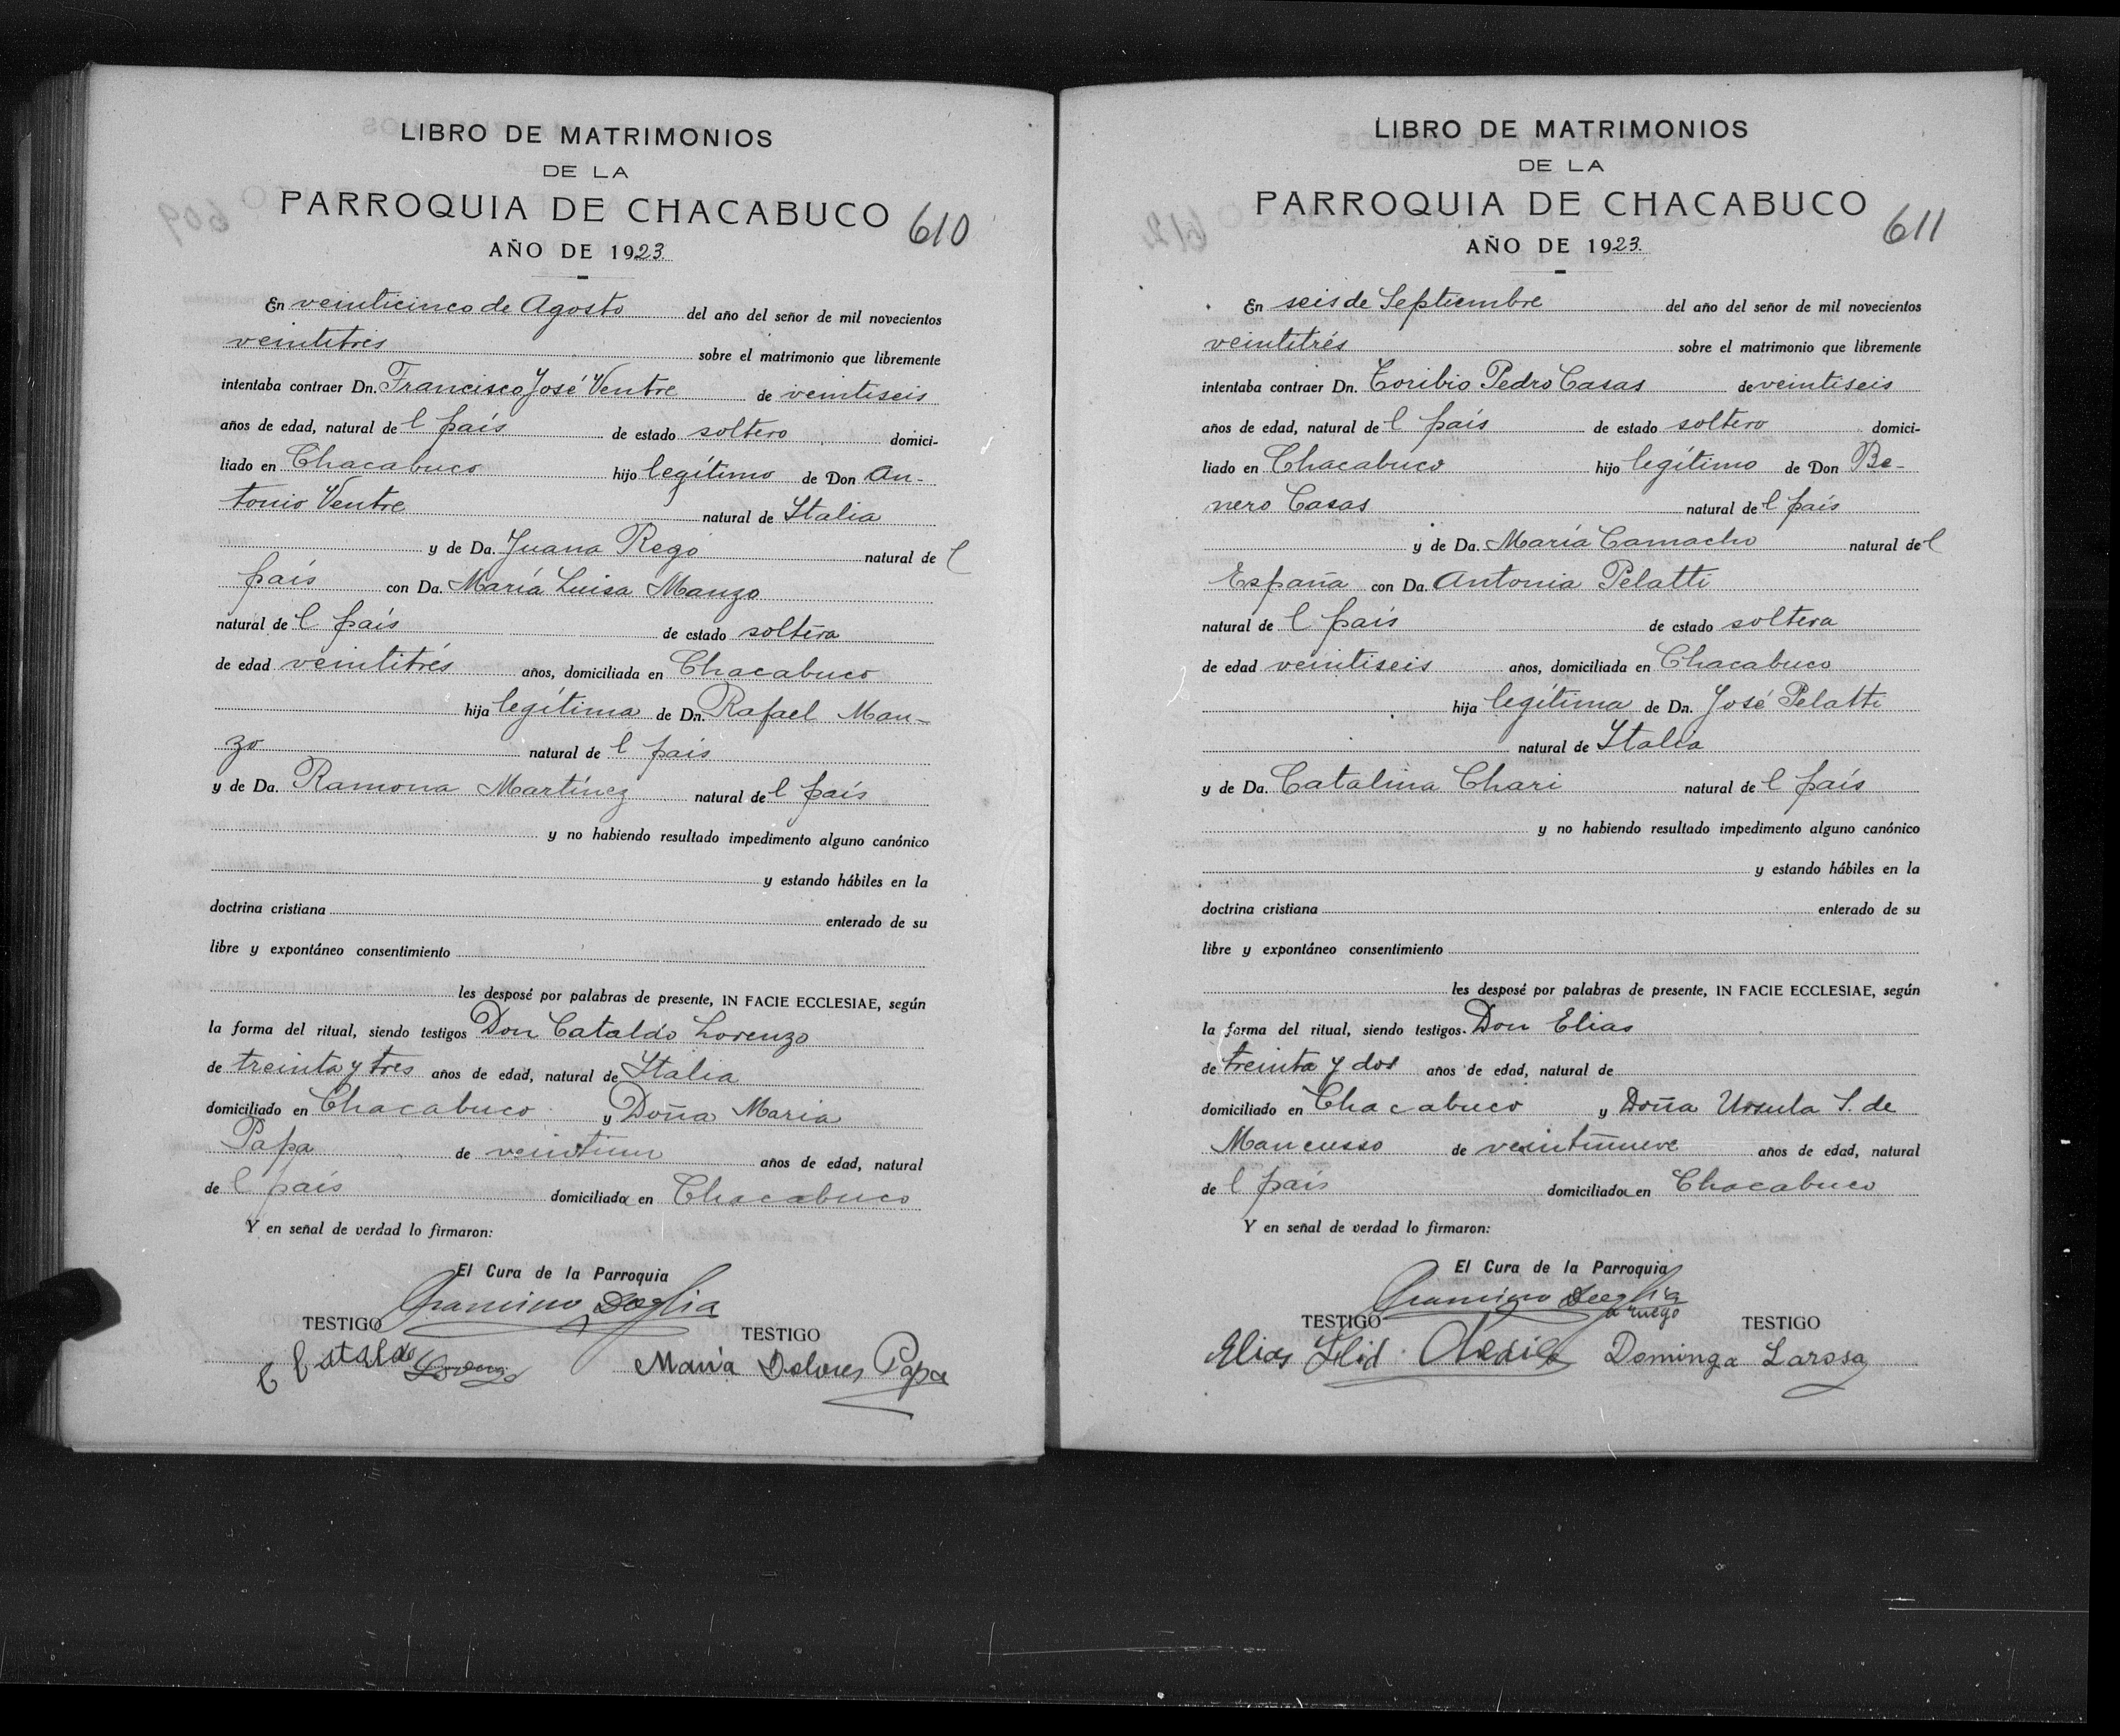 LIBRO DE MATRIMONIOS
DE LA
PARROQUIA DE CHACABUCO 610
AÑO DE 1923.
En veinticinco de Agosto del año del señor de mil novecientos
veintitres sobre el matrimonio que libremente
intentaba contraer Dn. Francisco José Ventre de veintiseis
años de edad, natural de l país de estado soltero domici-
liado en Chacabuco hijo legítimo de Don An-
tonio Ventre natural de Italia
y de Da. Juana Rego natural de l
país con Da. María Luisa Manzo
natural de l país de estado soltera
de edad veintitrés años, domiciliada en Chacabuco
hija legítima de Dn. Rafael Man-
zo natural de l país
y de Da. Ramona Martínez natural de l país
y no habiendo resultado impedimento alguno canónico
y estando hábiles en la
doctrina cristiana enterado de su
libre y expontáneo consentimiento
les desposé por palabras de presente, IN FACIE ECCLESIAE, según
la forma del ritual, siendo testigos Don Cataldo Lorenzo
de treinta y tres años de edad, natural de Italia
domiciliado en Chacabuco y Doña Maria
Papa de veintiun años de edad, natural
de l país domiciliada en Chacabuco
Y en señal de verdad lo firmaron:
El Cura de la Parroquia
TESTIGO TESTIGO
Cataldo Lorenzo Maria Dolores Papa
LIBRO DE MATRIMONIOS
DE LA
PARROQUIA DE CHACABUCO 611
AÑO DE 1923.
En seis de Septiembre del año del señor de mil novecientos
veintitrés sobre el matrimonio que libremente
intentaba contraer Dn. Toribio Pedro Casas de veintiseis
años de edad, natural de l país de estado soltero domici-
liado en Chacabuco hijo legítimo de Don Be-
nero Casas natural de l país
y de Da. María Camacho natural de l
España con Da. Antonia Pelatti
natural de l país de estado soltera
de edad veintiseis años, domiciliada en Chacabuco
hija legítima de Dn. José Pelatti
natural de Italia
y de Da. Catalina Chari natural de l país
y no habiendo resultado impedimento alguno canónico
y estando hábiles en la
doctrina cristiana enterado de su
libre y expontáneo consentimiento
les desposé por palabras de presente, IN FACIE ECCLESIAE, según
la forma del ritual, siendo testigos Don Elias
de treinta y dos años de edad, natural de
domiciliado en Chacabuco y Doña Ursula S. de
Mancusso de veintinueve años de edad, natural
de l país domiciliada en Chacabuco
Y en señal de verdad lo firmaron:
El Cura de la Parroquia
a ruego
TESTIGO TESTIGO
Elias Dominga Larosa